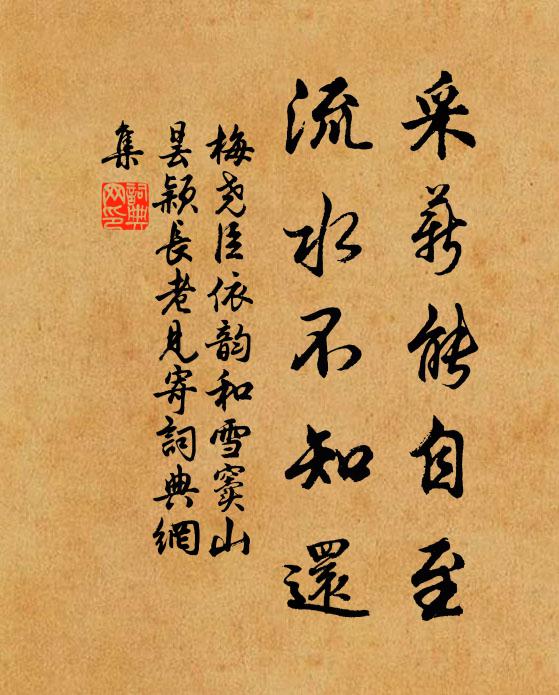 采薪能自至
流水不知還
梅堯臣依韵和雪竇山
曇穎長老見寄詞典網
集
詞典
网印